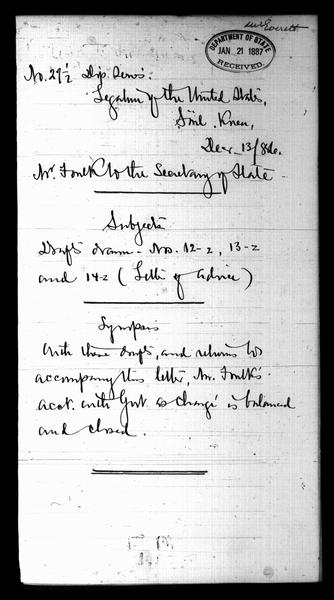 Mr Everett
DEPARTMENT OF STATE
JAN 21 1887
RECEIVED.
No. 29½ Dip. Series.
Legation of the United States,
Söul, Korea,
Dec. 13/886.
Mr. Foulk to the Secretary of State -
Subjects
Drafts drawn - Nos. 12-2, 13-2
and 14-2 (Letter of advice)
Synopsis
With these drafts, and returns to
accompany this letter, Mr. Foulk's
acct. with Govt. as Chargé is balanced
and closed.